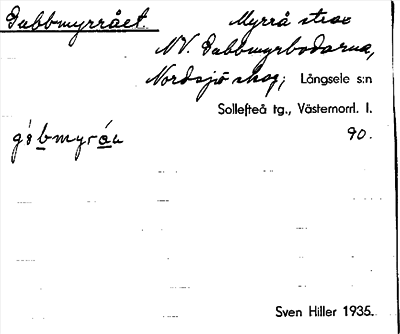 Gubbmyrrået. Myrrå strax
NV. Gubbmyrbodarna,
Nordsjö skog; Långsele s:n
Sollefteå tg., Västernorrl. l.
gòbmyrán 90.
Sven Hiller 1935.